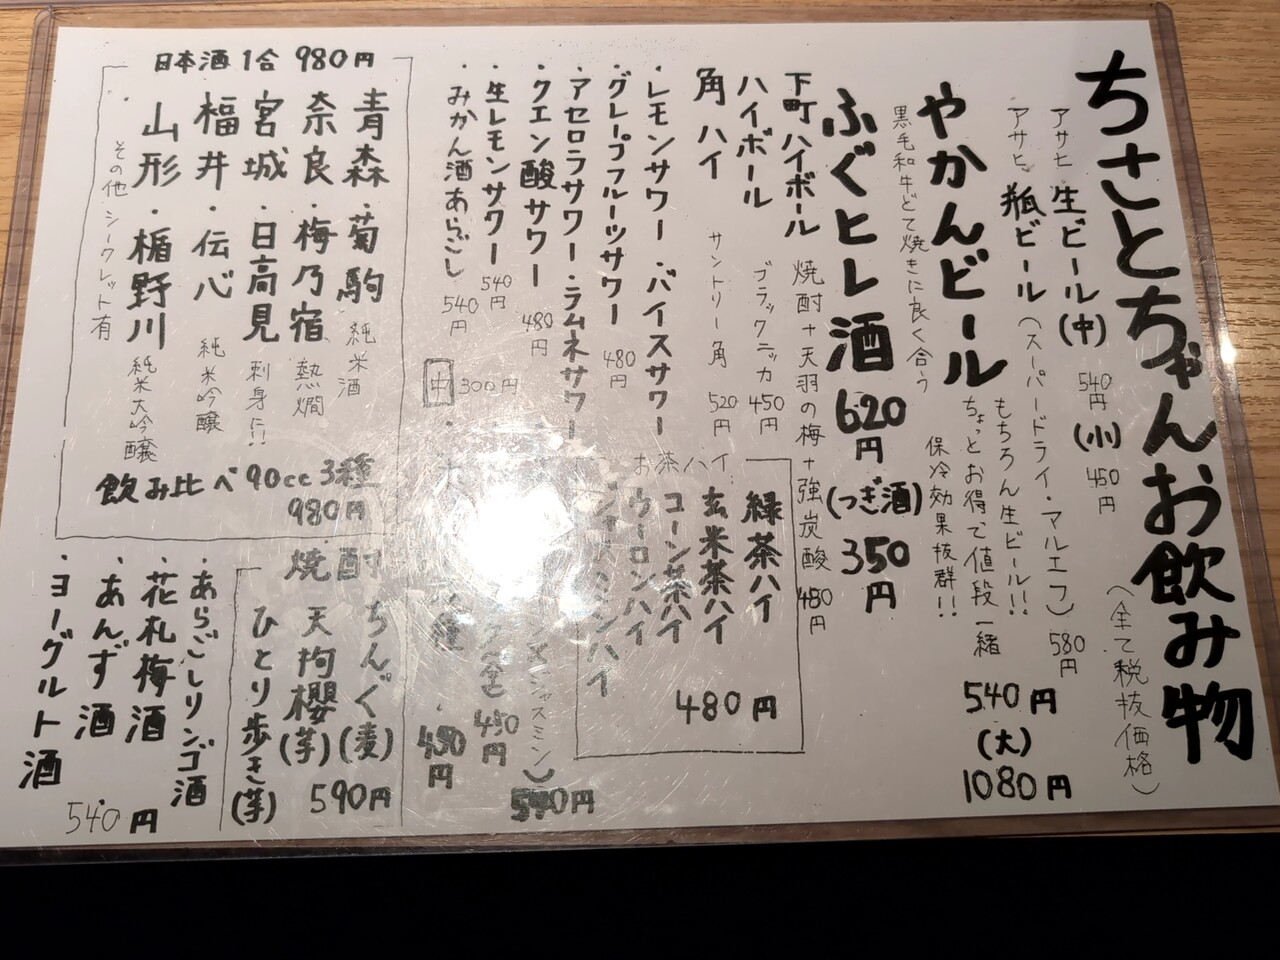 ちさとちゃんお飲み物
(全て税抜価格)
アサヒ 生ビール(中) 540円 (小) 450円
アサヒ 瓶ビール (スーパードライ・マルエフ) 580円
やかんビール もちろん生ビール!!
ちょっとお得で値段一緒
540円
(大)
1080円
黒毛和牛どて焼きに良く合う 保冷効果抜群!!
ふぐヒレ酒 620円 (つぎ酒) 350円
下町ハイボール 焼酎+天羽の梅+強炭酸 480円
ハイボール ブラックニッカ 450円
角ハイ サントリー角 520円
・レモンサワー・バイスサワー
・グレープフルーツサワー 480円
・アセロラサワー・ラムネサワー
・クエン酸サワー 480円
・生レモンサワー 540円
・みかん酒あらごし 540円
中 300円
お茶ハイ
緑茶ハイ
玄米茶ハイ
コーン茶ハイ
ウーロンハイ
ジャスミンハイ
480円
ジャスミン)
450円
450円
日本酒 1合 980円
青森・菊駒 純米酒
奈良・梅乃宿 熱燗
宮城・日高見 刺身に!!
福井・伝心 純米吟醸
山形・楯野川 純米大吟醸
その他 シークレット有
飲み比べ 90cc 3種
980円
焼酎
ちんぐ(麦)
天拘櫻(芋)
ひとり歩き(芋)
590円
・あらごしリンゴ酒
・花札梅酒
・あんず酒
・ヨーグルト酒
540円